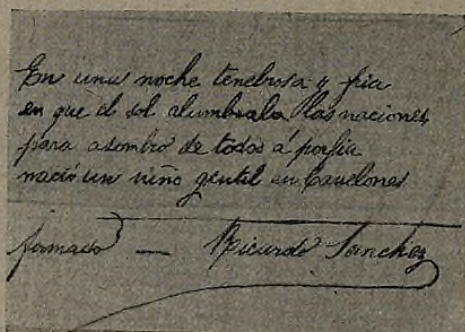 En una noche tenebrosa y fria
en que el sol alumbraba las naciones
para asombro de todos á porfia
nació un niño gentil en
firmado — Ricardo Sanchez